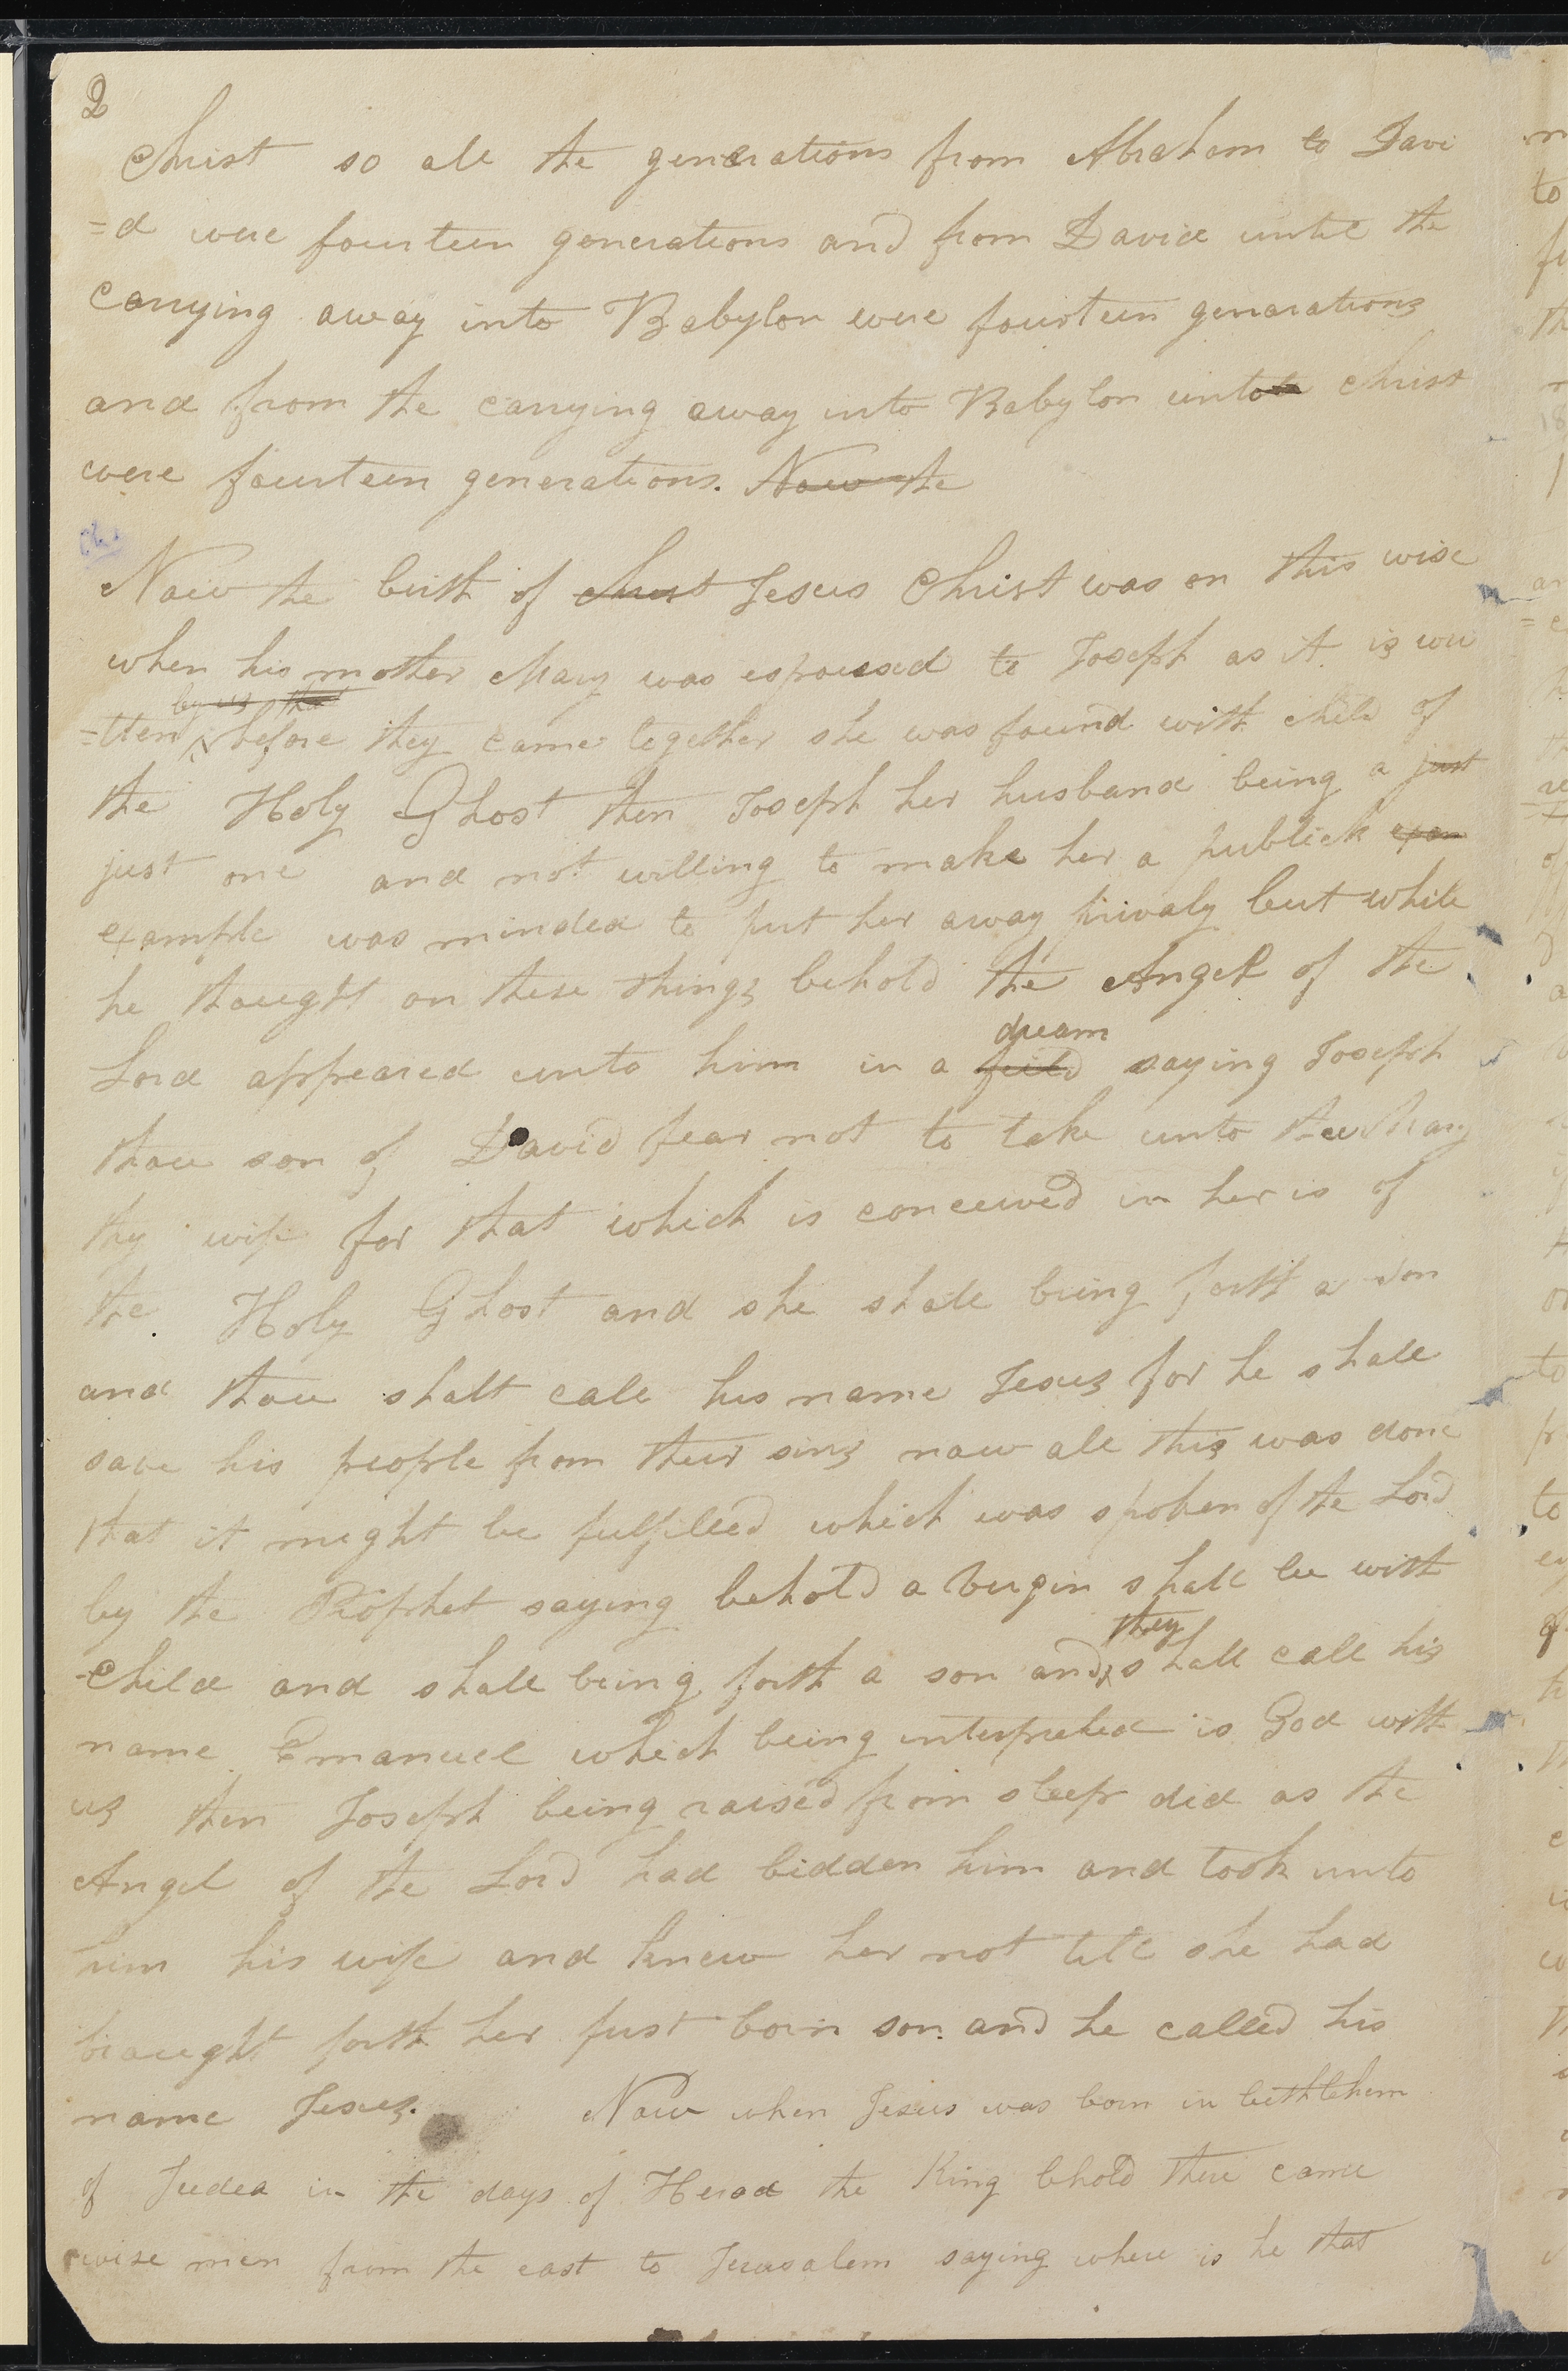 2
Christ so all the generations from Abraham to Davi
=d were fourteen generations and from David until the
carrying away into Babylon were fourteen generations
and from the carrying away into Babylon unto Christ
were fourteen generations. Now the
Now the birth of christ Jesus Christ was on this wise
when his mother Mary was espoused to Joseph as it is wri
by us that
=tten before they came together she was found with child of
the Holy Ghost then Joseph her husband being a just
just one and not willing to make her a publick exam
example was minded to put her away privaly but while
he thought on these things behold the Angel of the
dream
Lord appeared unto him in a feild saying Joseph
thou son of David fear not to take unto thee Mary
thy wife for that which is conceived in her is of
the Holy Ghost and she shall bring forth a son
and thou shalt call his name Jesus for he shall
save his people from their sins now all this was done
that it might be fulfilled which was spoken of the Lord
by the Prophet saying behold a virgin shall be with
they
child and shall bring forth a son and shall call his
name Emanuel which being interpreted is God with
us then Joseph being raised from sleep did as the
Angel of the Lord had bidden him and took unto
him his wife and knew her not till she had
braught forth her first born son and he called his
name Jesus. Now when Jesus was born in bethlehem
of Judea in the days of Herod the King bhold there came
wise men from the east to Jerusalem saying where is he that